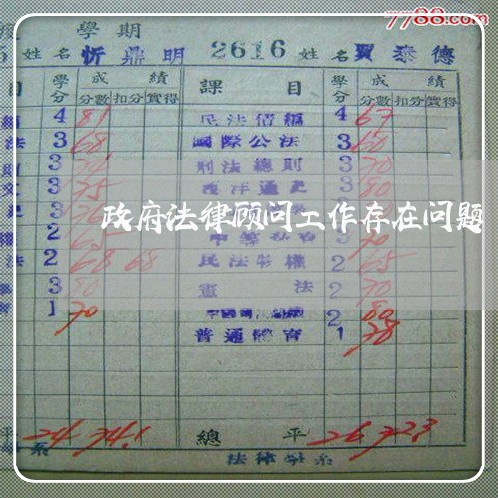 7788.com
學期
姓名 忻鼎明 2616 姓名 賈泰德
目 學分 成績 課目 學分 成績
分數 扣分 實得 分數 扣分 實得
4 81 民法債編 4 67
法 3 68 國際公法 3 60
3 刑法總則 3 70
3 75 西洋通史 3 80
政府法律顾问工作存在问题
2 3 70
法 2 68 68 民法物權 2 65
3 80 憲法 2 70
1 70 2 80
普通體育 1 78
平 24 74.1 總平 26 72.3
系 法律學系